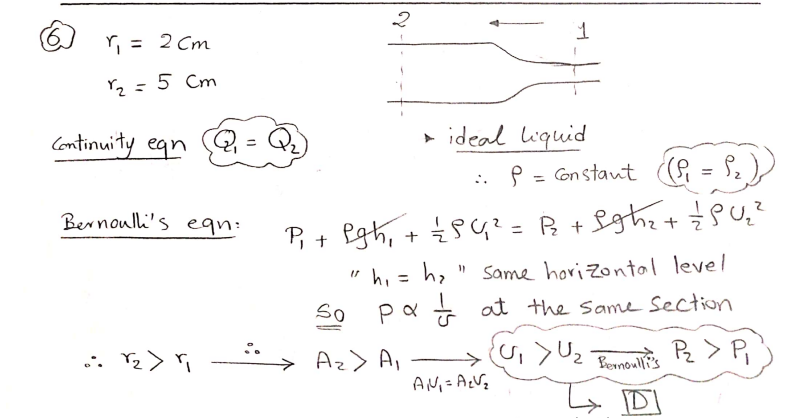 ⑥ r₁ = 2 Cm
r₂ = 5 Cm
2 ← 1
Continuity eqn Q₁ = Q₂
▸ ideal liquid
∴ ρ = Constant (ρ₁ = ρ₂)
Bernoulli's eqn: P₁ + ρgh₁ + ½ρU₁² = P₂ + ρgh₂ + ½ρU₂²
"h₁ = h₂" Same horizontal level
So P ∝ 1/U at the same Section
∴ r₂ > r₁ ∴→ A₂ > A₁ → A₁U₁ = A₂U₂ U₁ > U₂ → Bernoulli's P₂ > P₁
↳ D